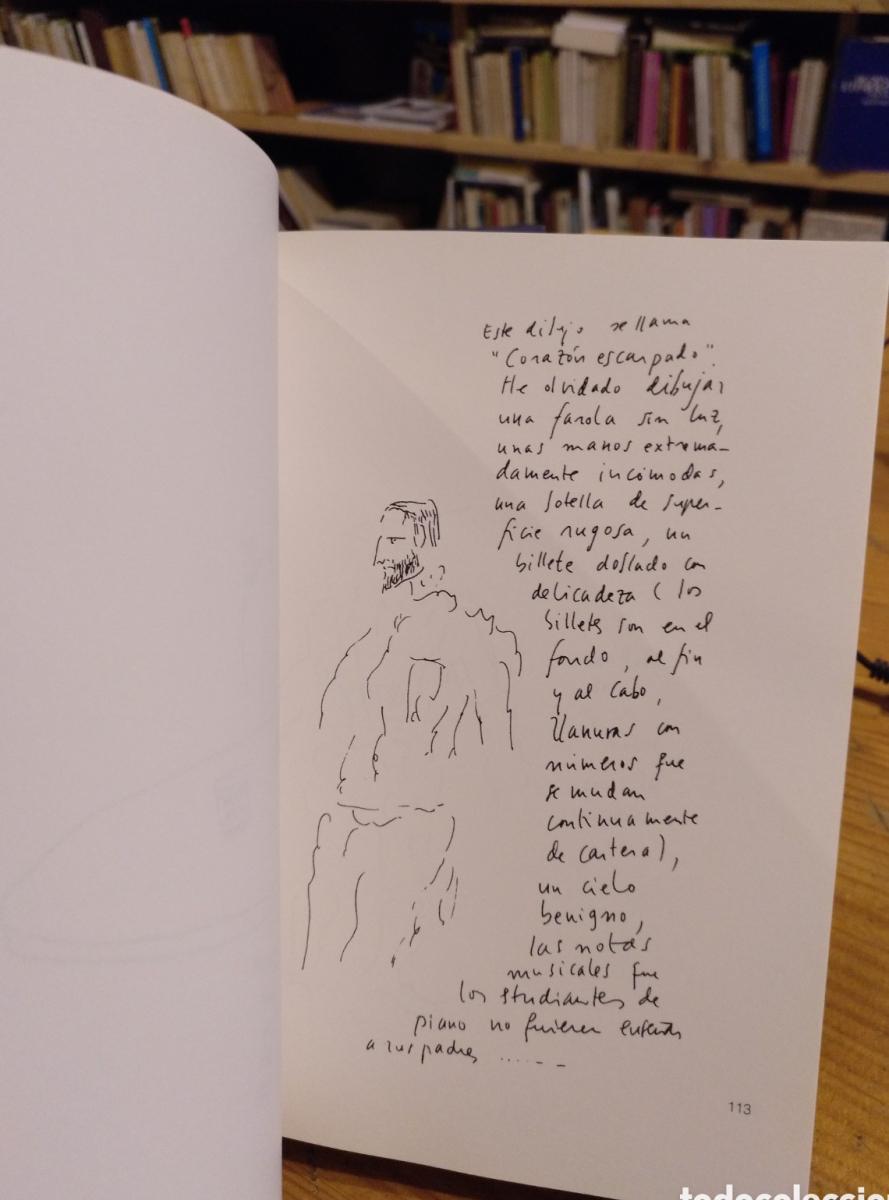 Este dibujo se llama
"Corazón escarpado".
He olvidado dibujar
una farola sin luz,
unas manos extrema-
damente incómodas,
una botella de super-
ficie rugosa, un
billete doblado con
delicadeza (los
billetes son en el
fondo, al fin
y al cabo,
llanuras con
números que
se mudan
continuamente
de cartera),
un cielo
benigno,
las notas
musicales que
los estudiantes de
piano no quieren enseñar
a sus padres ..... - -
113
todocoleccion